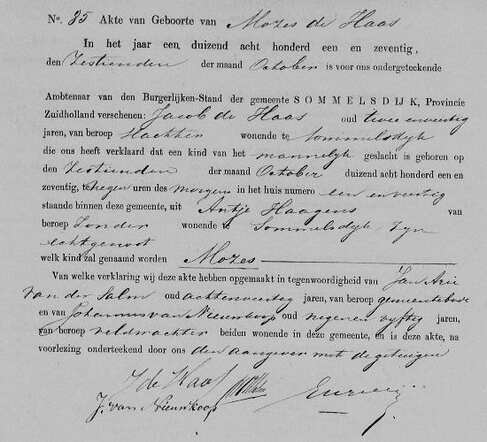 No. 35 Akte van Geboorte van Mozes de Haas
In het jaar een duizend acht honderd een en zeventig,
den Zestienden der maand October is voor ons ondergeteekende
Ambtenaar van den Burgerlijken-Stand der gemeente SOMMELSDIJK, Provincie
Zuidholland verschenen: Jacob de Haas oud twee en veertig
jaren, van beroep wonende te Sommelsdijk
die ons heeft verklaard dat een kind van het mannelijk geslacht is geboren op
den Zestienden der maand October duizend acht honderd een en
zeventig, te uren des morgens in het huis numero een en veertig
staande binnen deze gemeente, uit Antje Haagens van
beroep Zonder wonende te Sommelsdijk Zijn
echtgenoot
welk kind zal genaamd worden Mozes
Van welke verklaring wij deze akte hebben opgemaakt in tegenwoordigheid van Jan Arie
van der Salm oud achtenveertig jaren, van beroep gemeentebode
en van Johannes van Nieuwkoop oud negen en vijftig jaren,
van beroep veldwachter beiden wonende in deze gemeente, en is deze akte, na
voorlezing onderteekend door ons den aangever met de getuigen
J de Haas
J. van Nieuwkoop